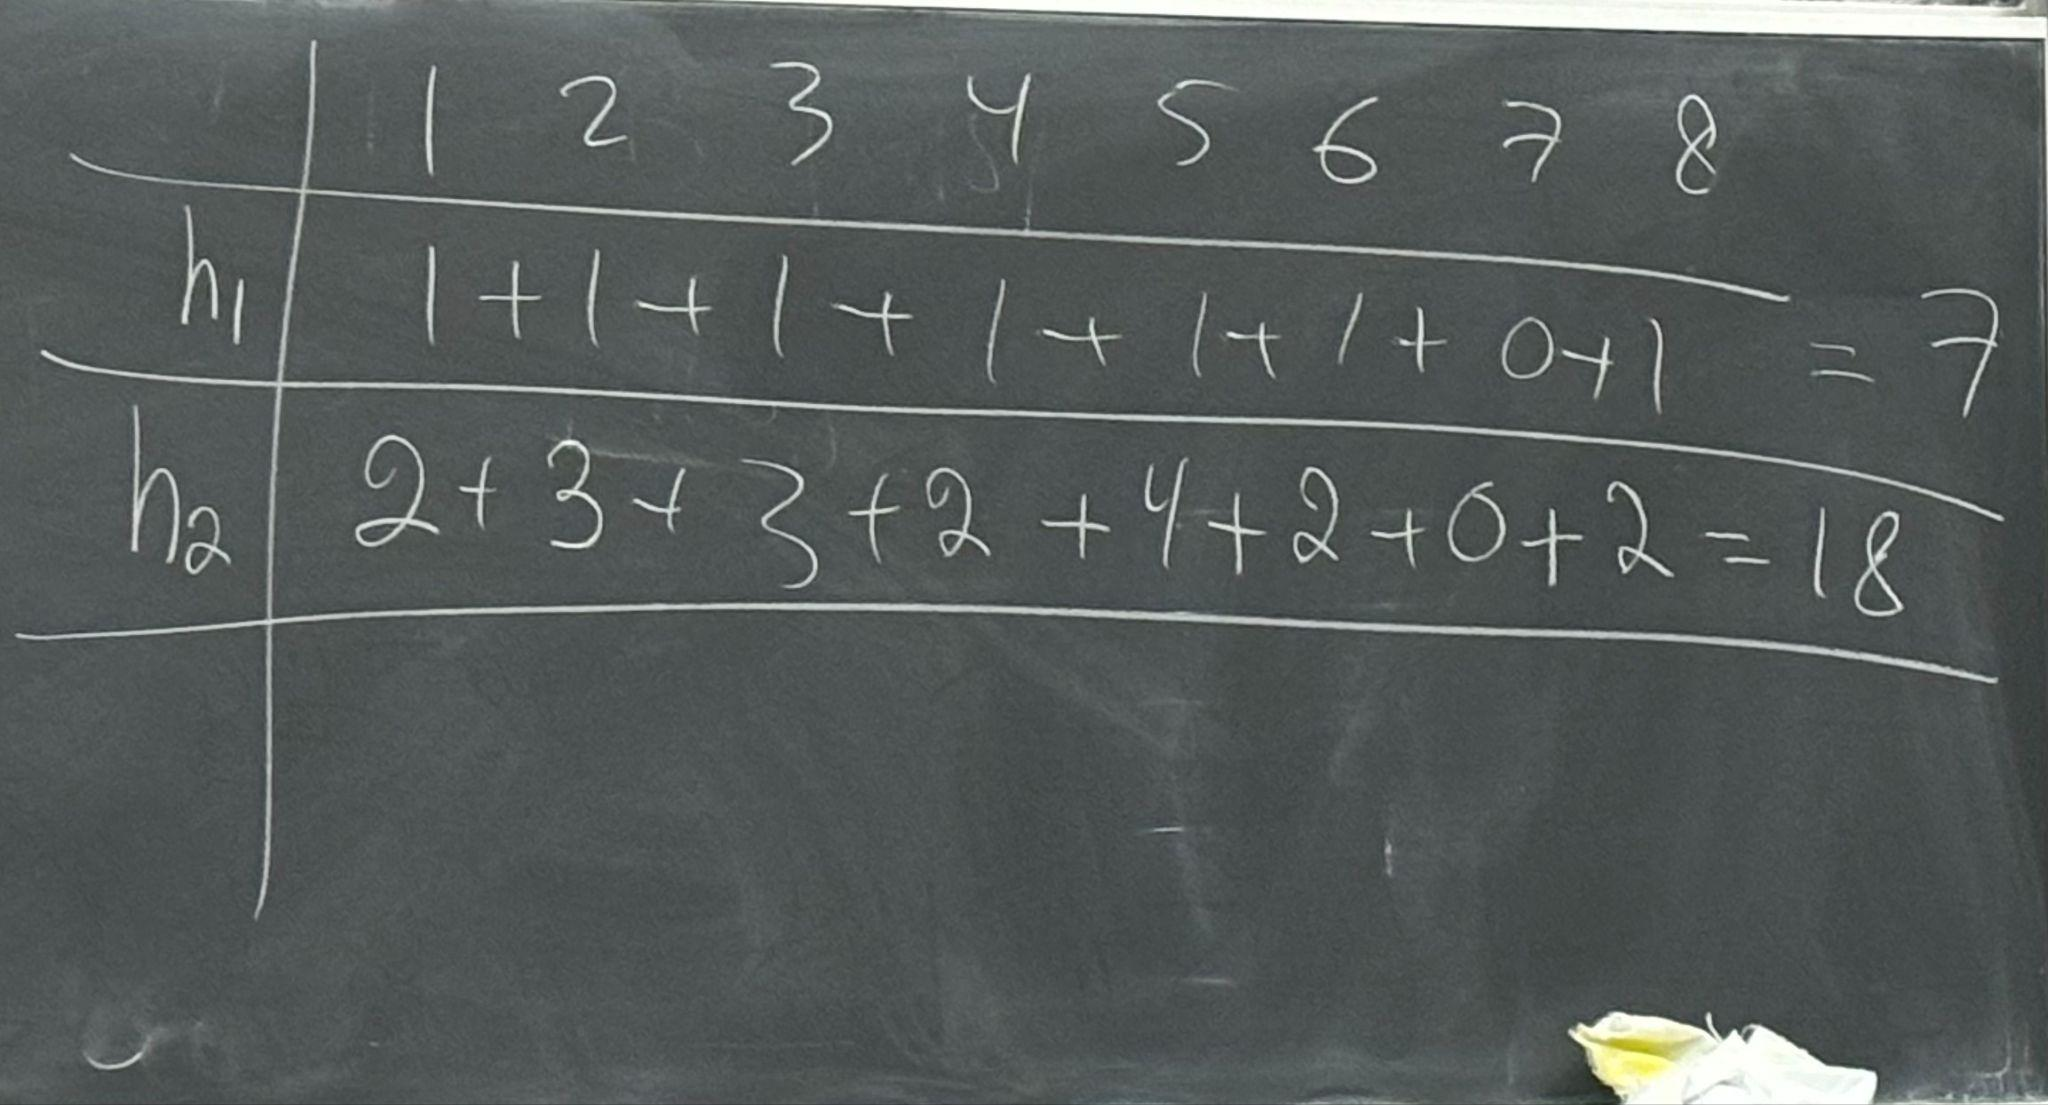 1 2 3 4 5 6 7 8
h1 1 + 1 + 1 + 1 + 1 + 1 + 0 + 1 = 7
h2 2 + 3 + 3 + 2 + 4 + 2 + 0 + 2 = 18